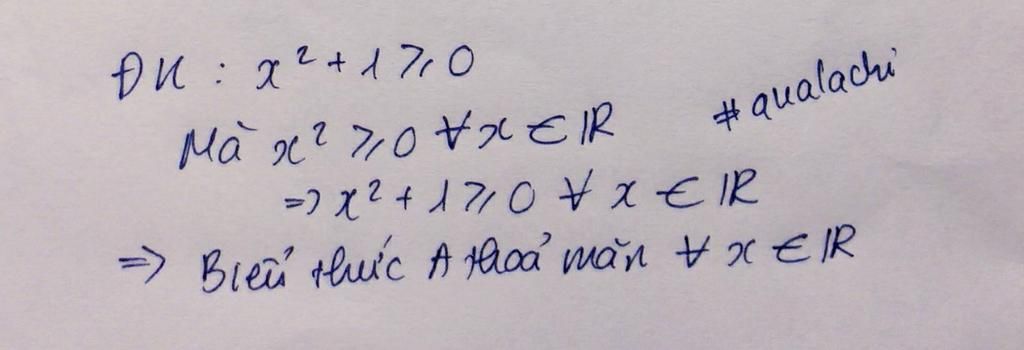 ĐK : x² + 1 ⩾ 0
Mà x² ⩾ 0 ∀x ∈ ℝ
#qualachi
=> x² + 1 ⩾ 0 ∀ x ∈ ℝ
=> Biểu thức A thoả mãn ∀ x ∈ ℝ